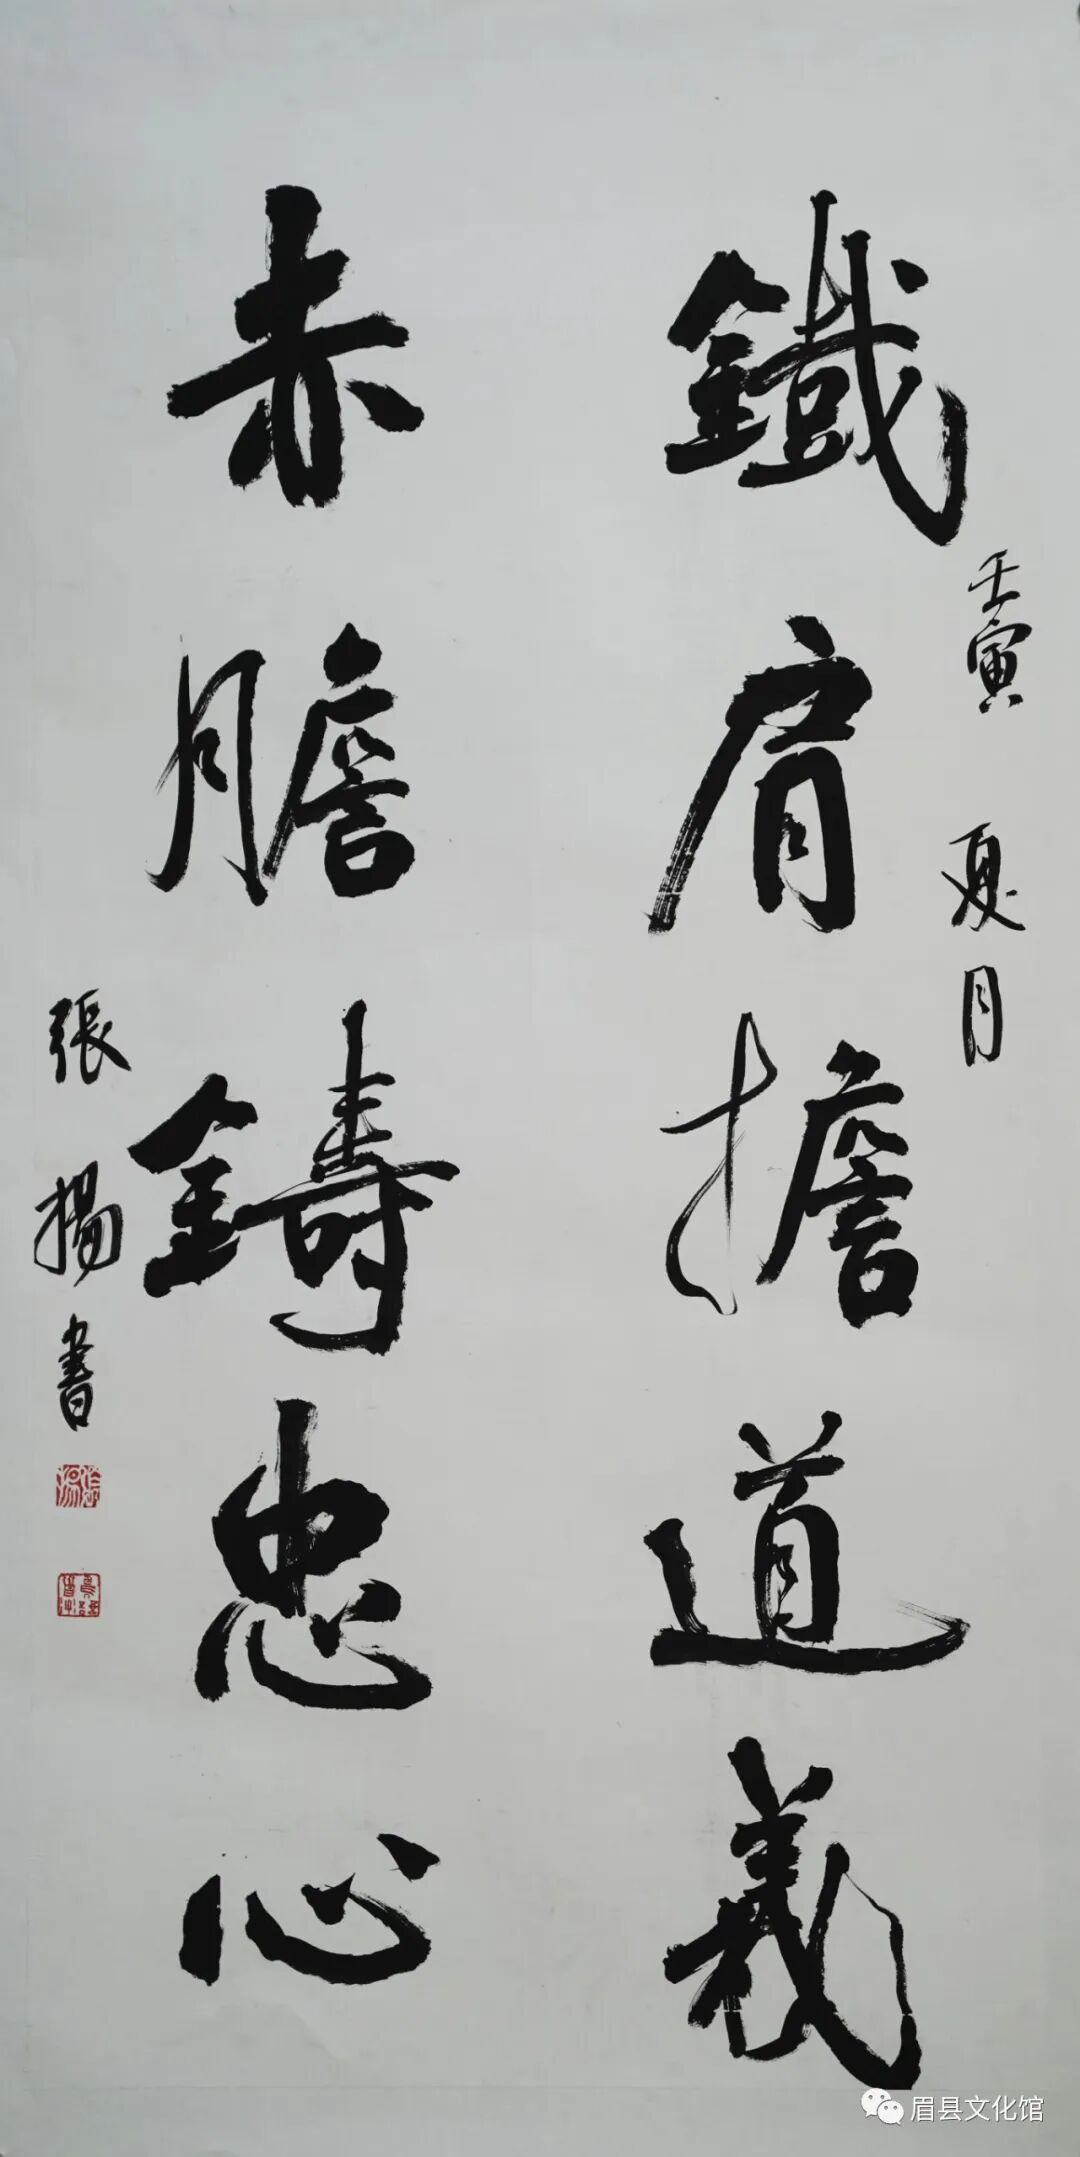 鐵肩擔道義
壬寅 夏月
赤膽鑄忠心
張揚書
眉县文化馆